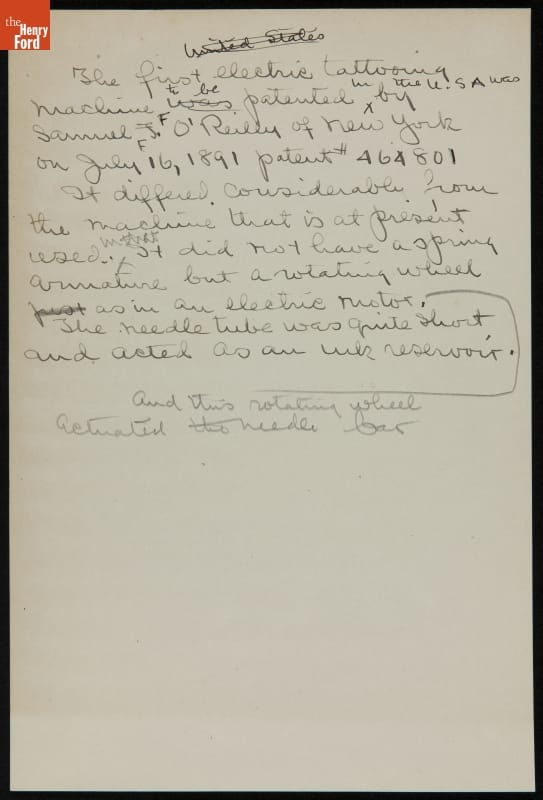 the
Henry
Ford
United States
The first electric tattooing
to be in the U.S A was
machine was patented x by
F
Samuel J. O'Reilly of New York
F
on July 16, 1891 patent # 464801
It differed considerable from
the machine that is at present
in that
used. It did not have a spring
armature but a rotating wheel
just as in an electric motor.
The needle tube was quite short
and acted as an ink reservoir.
And this rotating wheel
actuated the needle bar